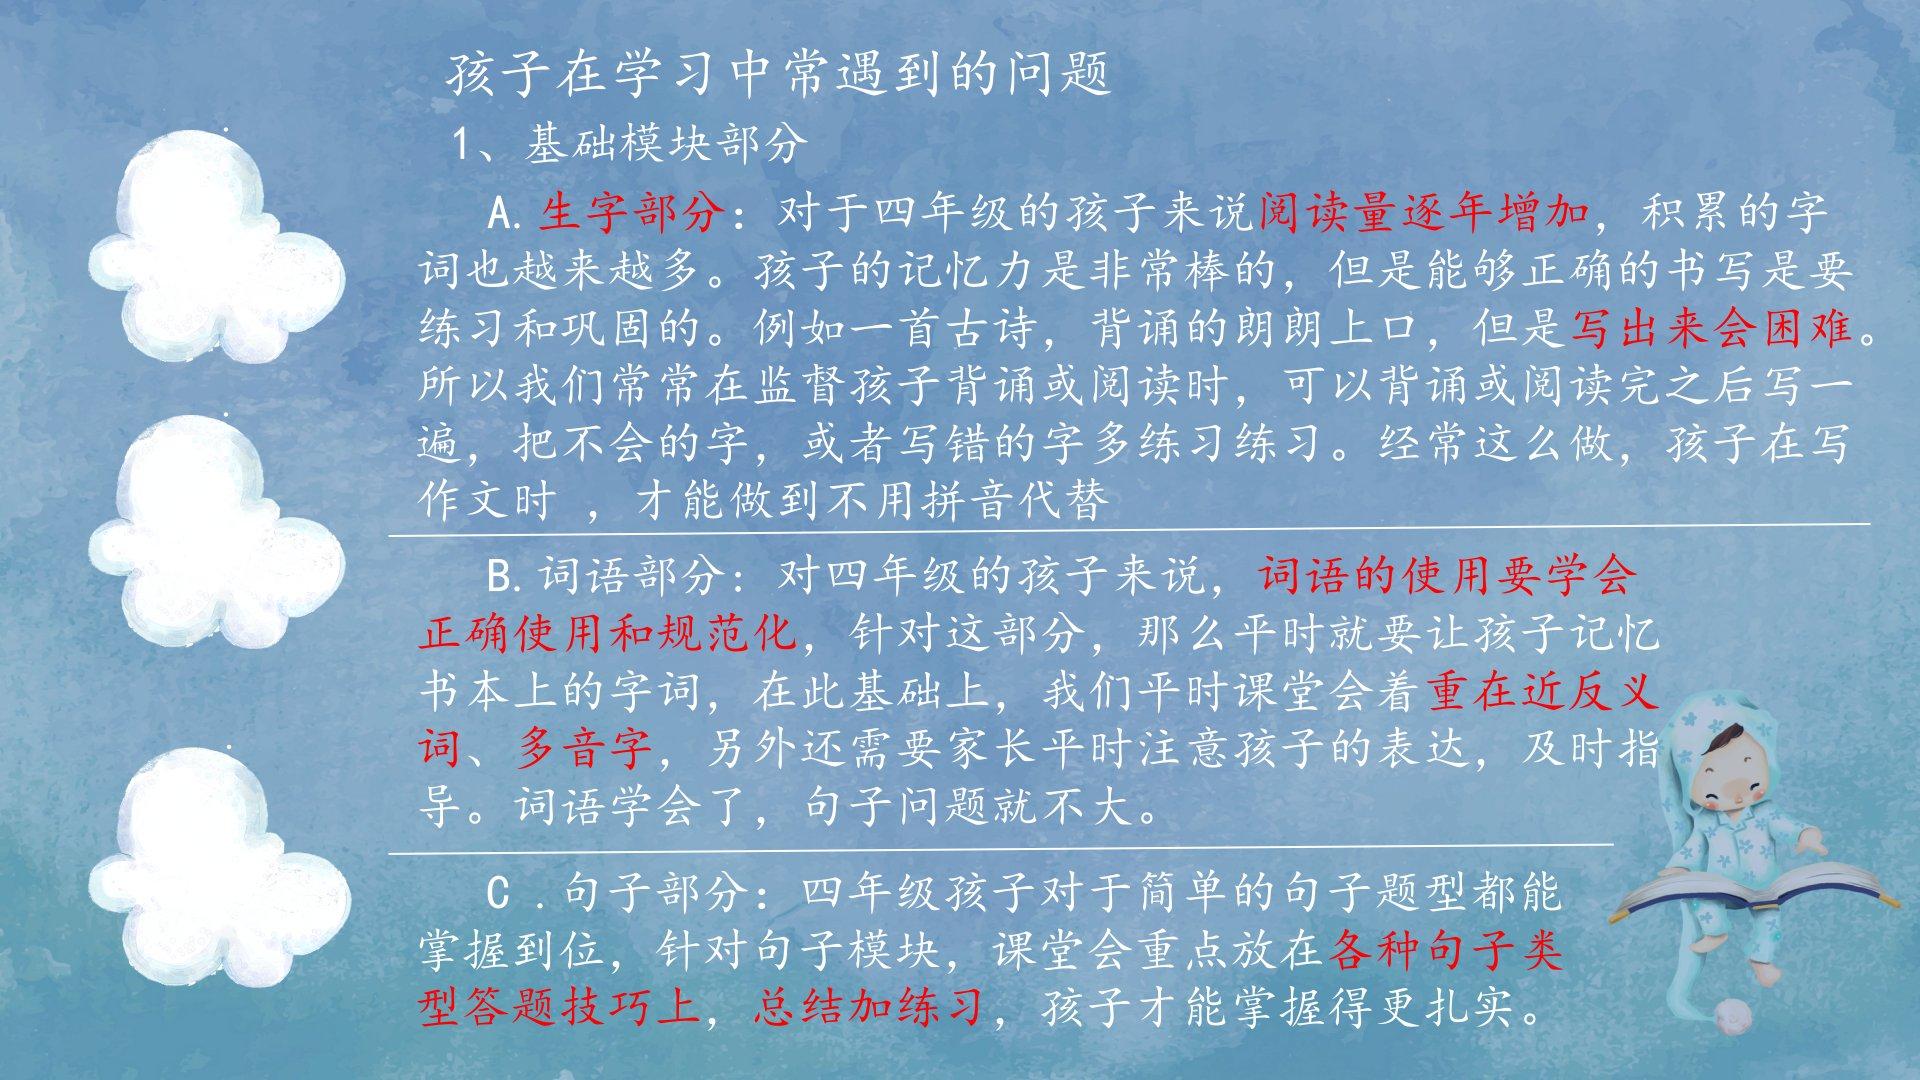 孩子在学习中常遇到的问题
1、基础模块部分
A.生字部分：对于四年级的孩子来说阅读量逐年增加，积累的字
词也越来越多。孩子的记忆力是非常棒的，但是能够正确的书写是要
练习和巩固的。例如一首古诗，背诵的朗朗上口，但是写出来会困难。
所以我们常常在监督孩子背诵或阅读时，可以背诵或阅读完之后写一
遍，把不会的字，或者写错的字多练习练习。经常这么做，孩子在写
作文时 ，才能做到不用拼音代替
B.词语部分：对四年级的孩子来说，词语的使用要学会
正确使用和规范化，针对这部分，那么平时就要让孩子记忆
书本上的字词，在此基础上，我们平时课堂会着重在近反义
词、多音字，另外还需要家长平时注意孩子的表达，及时指
导。词语学会了，句子问题就不大。
C .句子部分：四年级孩子对于简单的句子题型都能
掌握到位，针对句子模块，课堂会重点放在各种句子类
型答题技巧上，总结加练习，孩子才能掌握得更扎实。